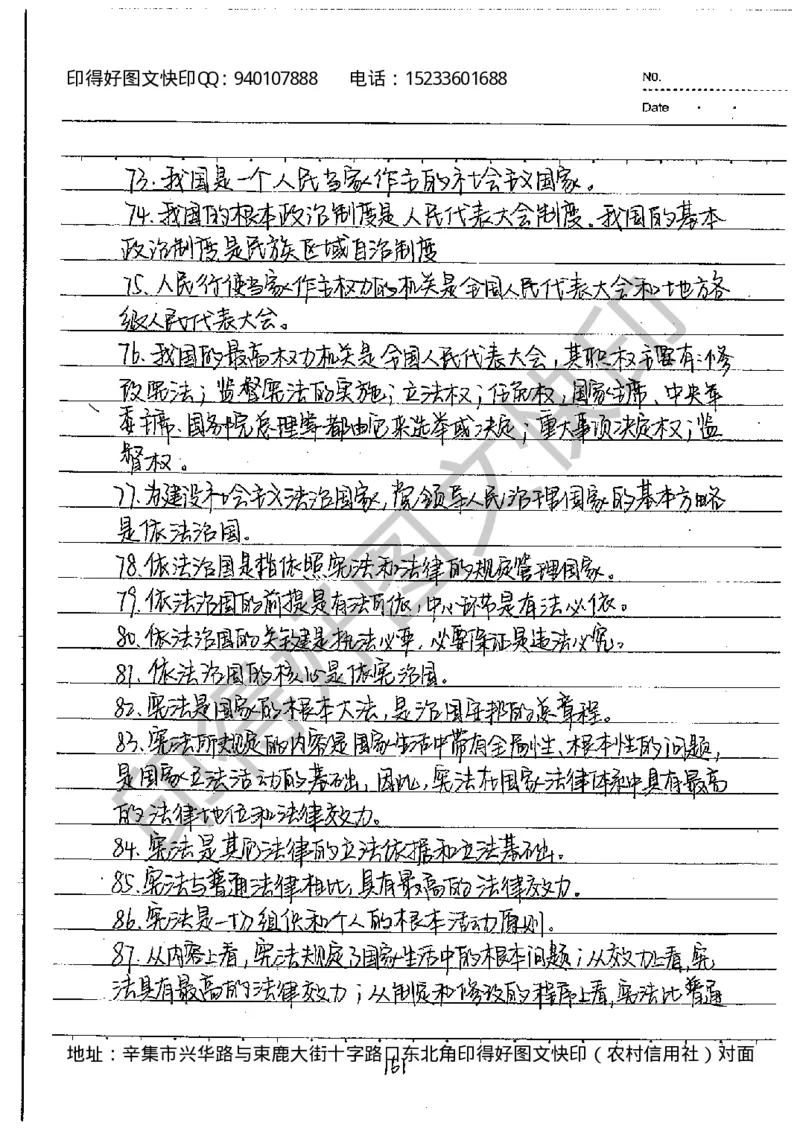 印得好图文快印QQ：940107888 电话：15233601688
No.
Date
73.我国是一个人民当家作主的社会主义国家。
74.我国的根本政治制度是人民代表大会制度。我国的基本
政治制度是民族区域自治制度
75.人民行使当家作主权力的机关是全国人民代表大会和地方各
级人民代表大会。
76.我国的最高权力机关是全国人民代表大会，其职权主要有：修
改宪法；监督宪法的实施；立法权；任免权，国家主席、中央军
委主席、国务院总理等都由它来选举或决定；重大事项决定权；监
督权。
77.为建设社会主义法治国家，党领导人民治理国家的基本方略
是依法治国。
78.依法治国是指依照宪法和法律的规定管理国家。
79.依法治国的前提是有法可依，中心环节是有法必依。
80.依法治国的关键是执法必严，必要保证是违法必究。
81.依法治国的核心是依宪治国。
82.宪法是国家的根本大法，是治国安邦的总章程。
83.宪法所规定的内容是国家生活中带有全局性、根本性的问题，
是国家立法活动的基础，因此，宪法在国家法律体系中具有最高
的法律地位和法律效力。
84.宪法是其它法律的立法依据和立法基础。
85.宪法与普通法律相比，具有最高的法律效力。
86.宪法是一切组织和个人的根本活动原则。
87.从内容上看，宪法规定了国家生活中的根本问题；从效力上看，宪
法具有最高的法律效力；从制定和修改的程序上看，宪法比普通
地址：辛集市兴华路与束鹿大街十字路口东北角印得好图文快印（农村信用社）对面
161
印得好图文快印